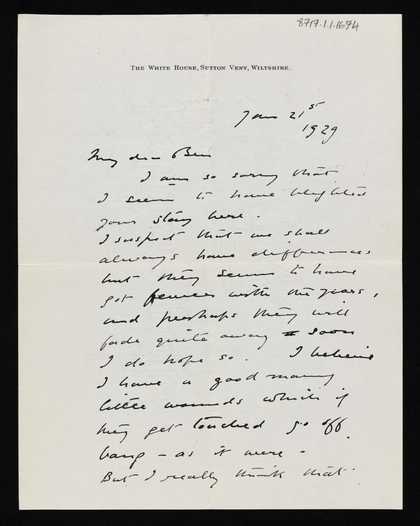 8717.1.1.1694
THE WHITE HOUSE, SUTTON VENY, WILTSHIRE.
Jan 21st
1929
My dear Ben
I am so sorry that
I seem to have blighted
your stay here.
I suspect that we shall
always have differences
but they seem to have
got fewer with the years,
and perhaps they will
fade quite away soon
I do hope so. I believe
I have a good many
little wounds which if
they get touched go off
bang – as it were –
But I really think that